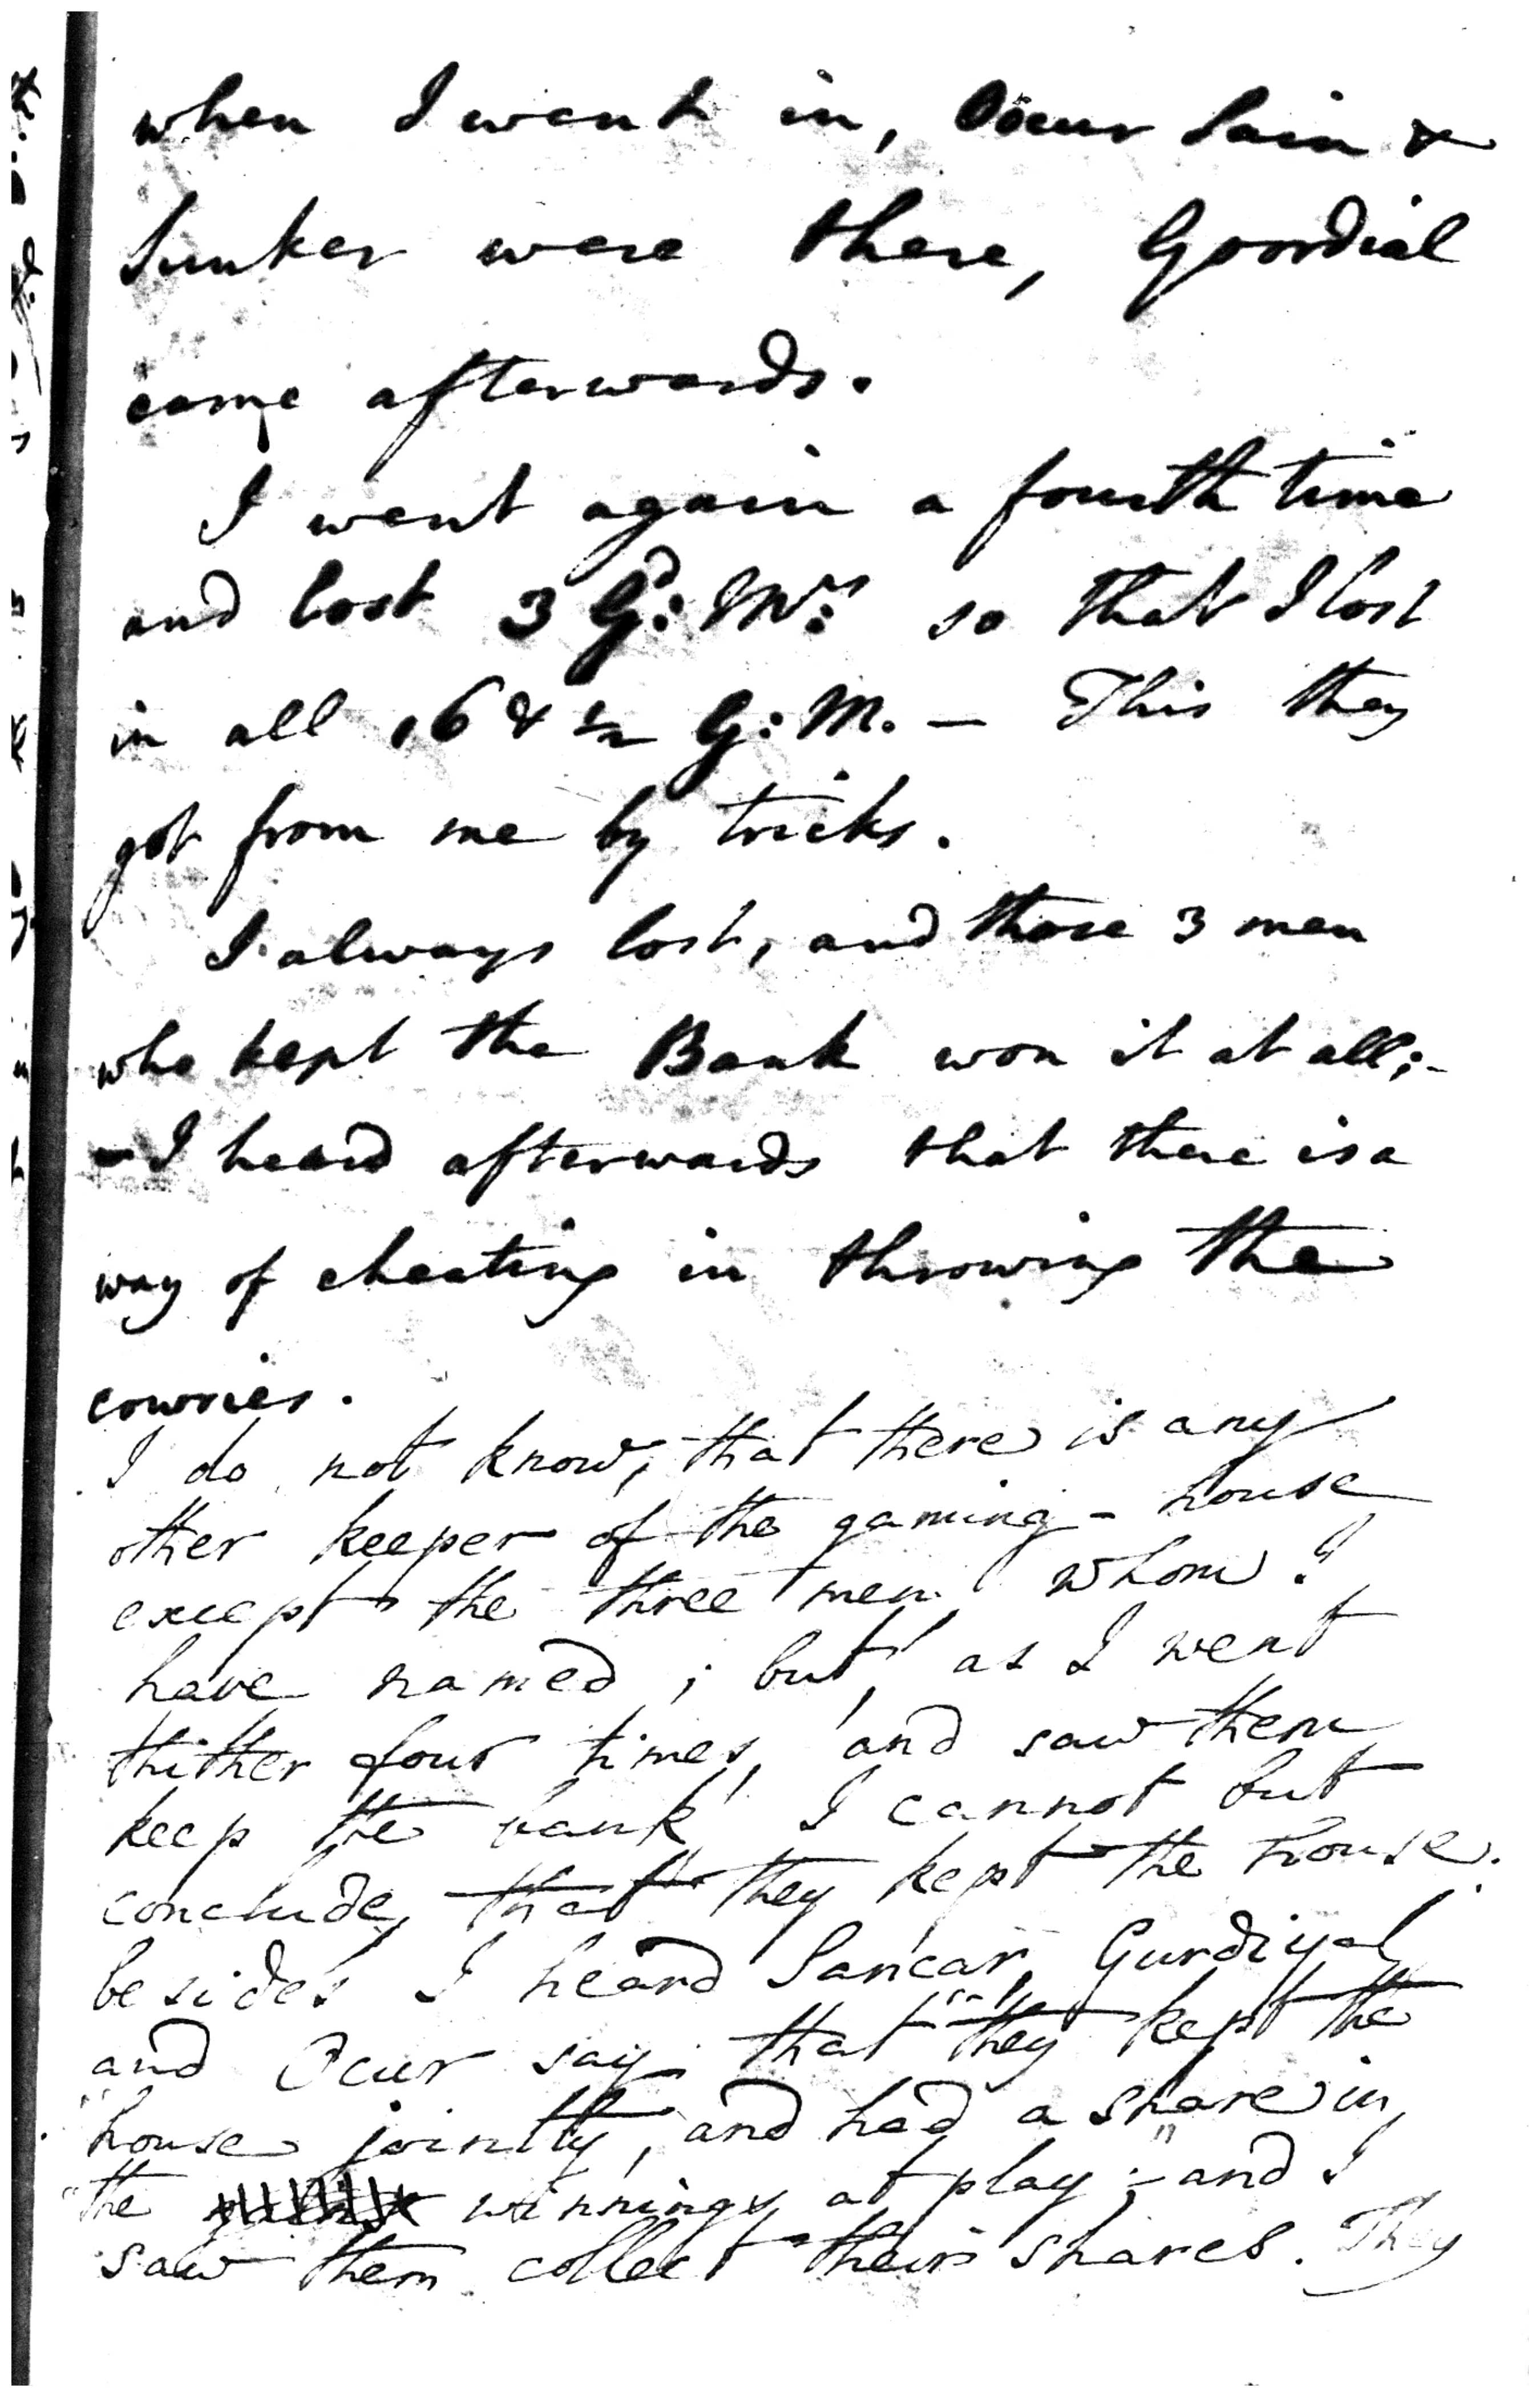 when I went in, Ocur Sain &
Sunker were there, Goordial
came afterwards.
I went again a fourth time
and lost 3 Gd: Mrs: so that I lost
in all 16 & 1/2 G: M. — This they
got from me by tricks.
I always lost, and those 3 men
who kept the Bank won it at all;-
- I heard afterwards that there is a
way of cheating in throwing the
cowries.
I do not know, that there is any
other keeper of the gaming-house
except the three men whom I
have named; but, as I went
thither four times, and saw them
keep the bank, I cannot but
conclude, that they kept the house.
besides I heard Sancar, Gurdiyal
and Ocur say that "they kept the
"house jointly, and had a share in
"the winnings at play"; - and I
saw them collect their shares. They